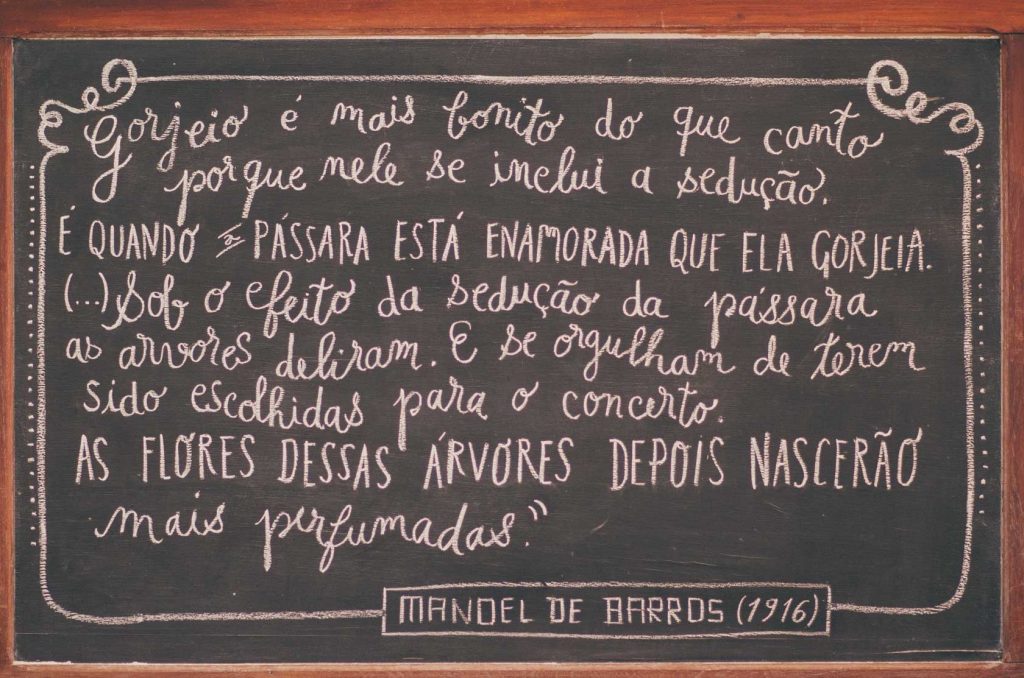 Gorjeio é mais bonito do que canto
porque nele se inclui a sedução.
É QUANDO a PÁSSARA ESTÁ ENAMORADA QUE ELA GORJEIA.
(...) Sob o efeito da sedução da pássara
as arvores deliram. E se orgulham de terem
sido escolhidas para o concerto.
AS FLORES DESSAS ÁRVORES DEPOIS NASCERÃO
mais perfumadas."
MANOEL DE BARROS (1916)